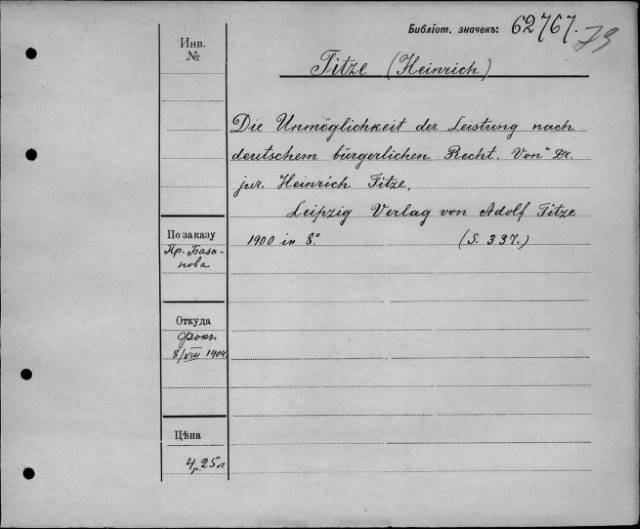 Библіот. значекъ: 62767. 79
Инв.
№
Titze (Heinrich)
Die Unmöglichkeit der Leistung nach
deutschem bürgerlichen Recht. Von Dr.
jur. Heinrich Titze.
Leipzig Verlag von Adolf Titze
1900 in 8° (S. 337.)
По заказу
Пр. База-
нова
Откуда
Фокъ
8/VIII 1904
Цѣна
4р.25к